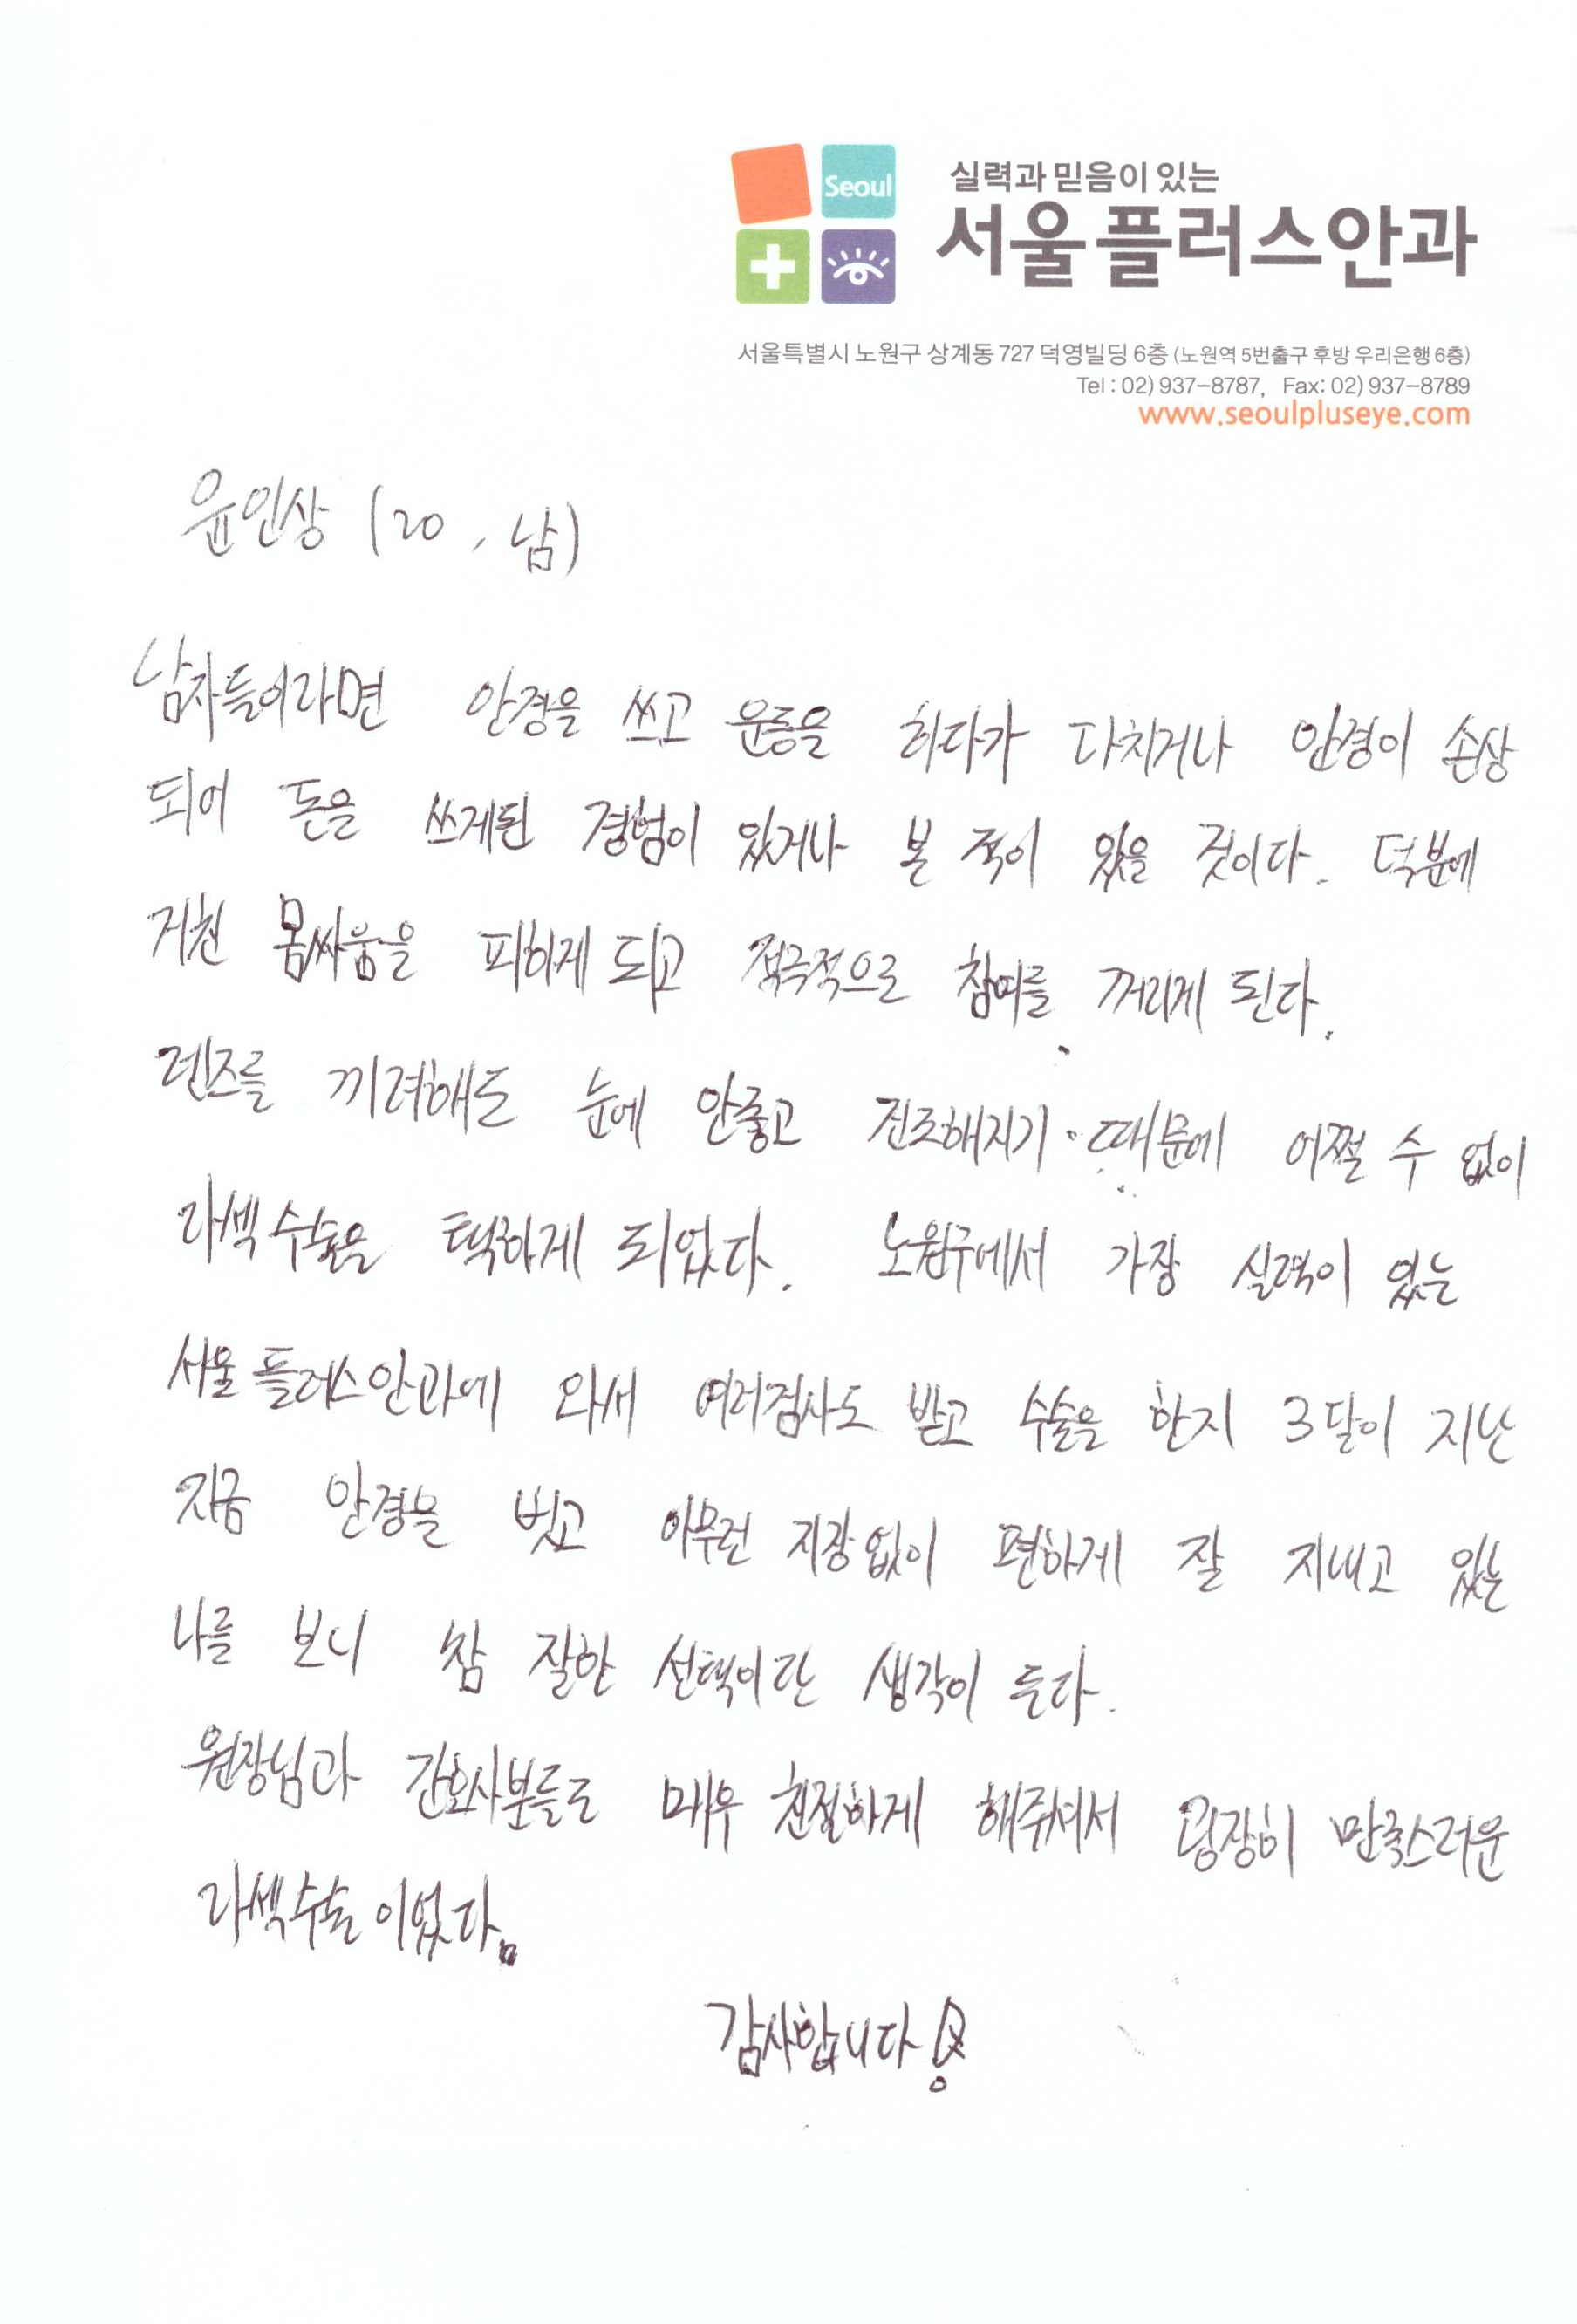 Seoul
실력과 믿음이 있는
서울플러스안과
서울특별시 노원구 상계동 727 덕영빌딩 6층 (노원역 5번출구 후방 우리은행 6층)
Tel : 02) 937-8787, Fax: 02) 937-8789
www.seoulpluseye.com
윤인상 (20, 남)
남자들이라면 안경을 쓰고 운동을 하다가 다치거나 안경이 손상
되어 돈을 쓰게된 경험이 있거나 본 적이 있을 것이다. 덕분에
거친 몸싸움을 피하게 되고 적극적으로 참여를 꺼리게 된다.
렌즈를 끼려해도 눈에 안좋고 건조해지기 때문에 어쩔 수 없이
라섹수술을 택하게 되었다. 노원구에서 가장 실력이 있는
서울플러스안과에 와서 여러검사도 받고 수술을 한지 3달이 지난
지금 안경을 벗고 아무런 지장없이 편하게 잘 지내고 있는
나를 보니 참 잘한 선택이란 생각이 든다.
원장님과 간호사분들도 매우 친절하게 해주셔서 굉장히 만족스러운
라섹수술이었다.
감사합니다!